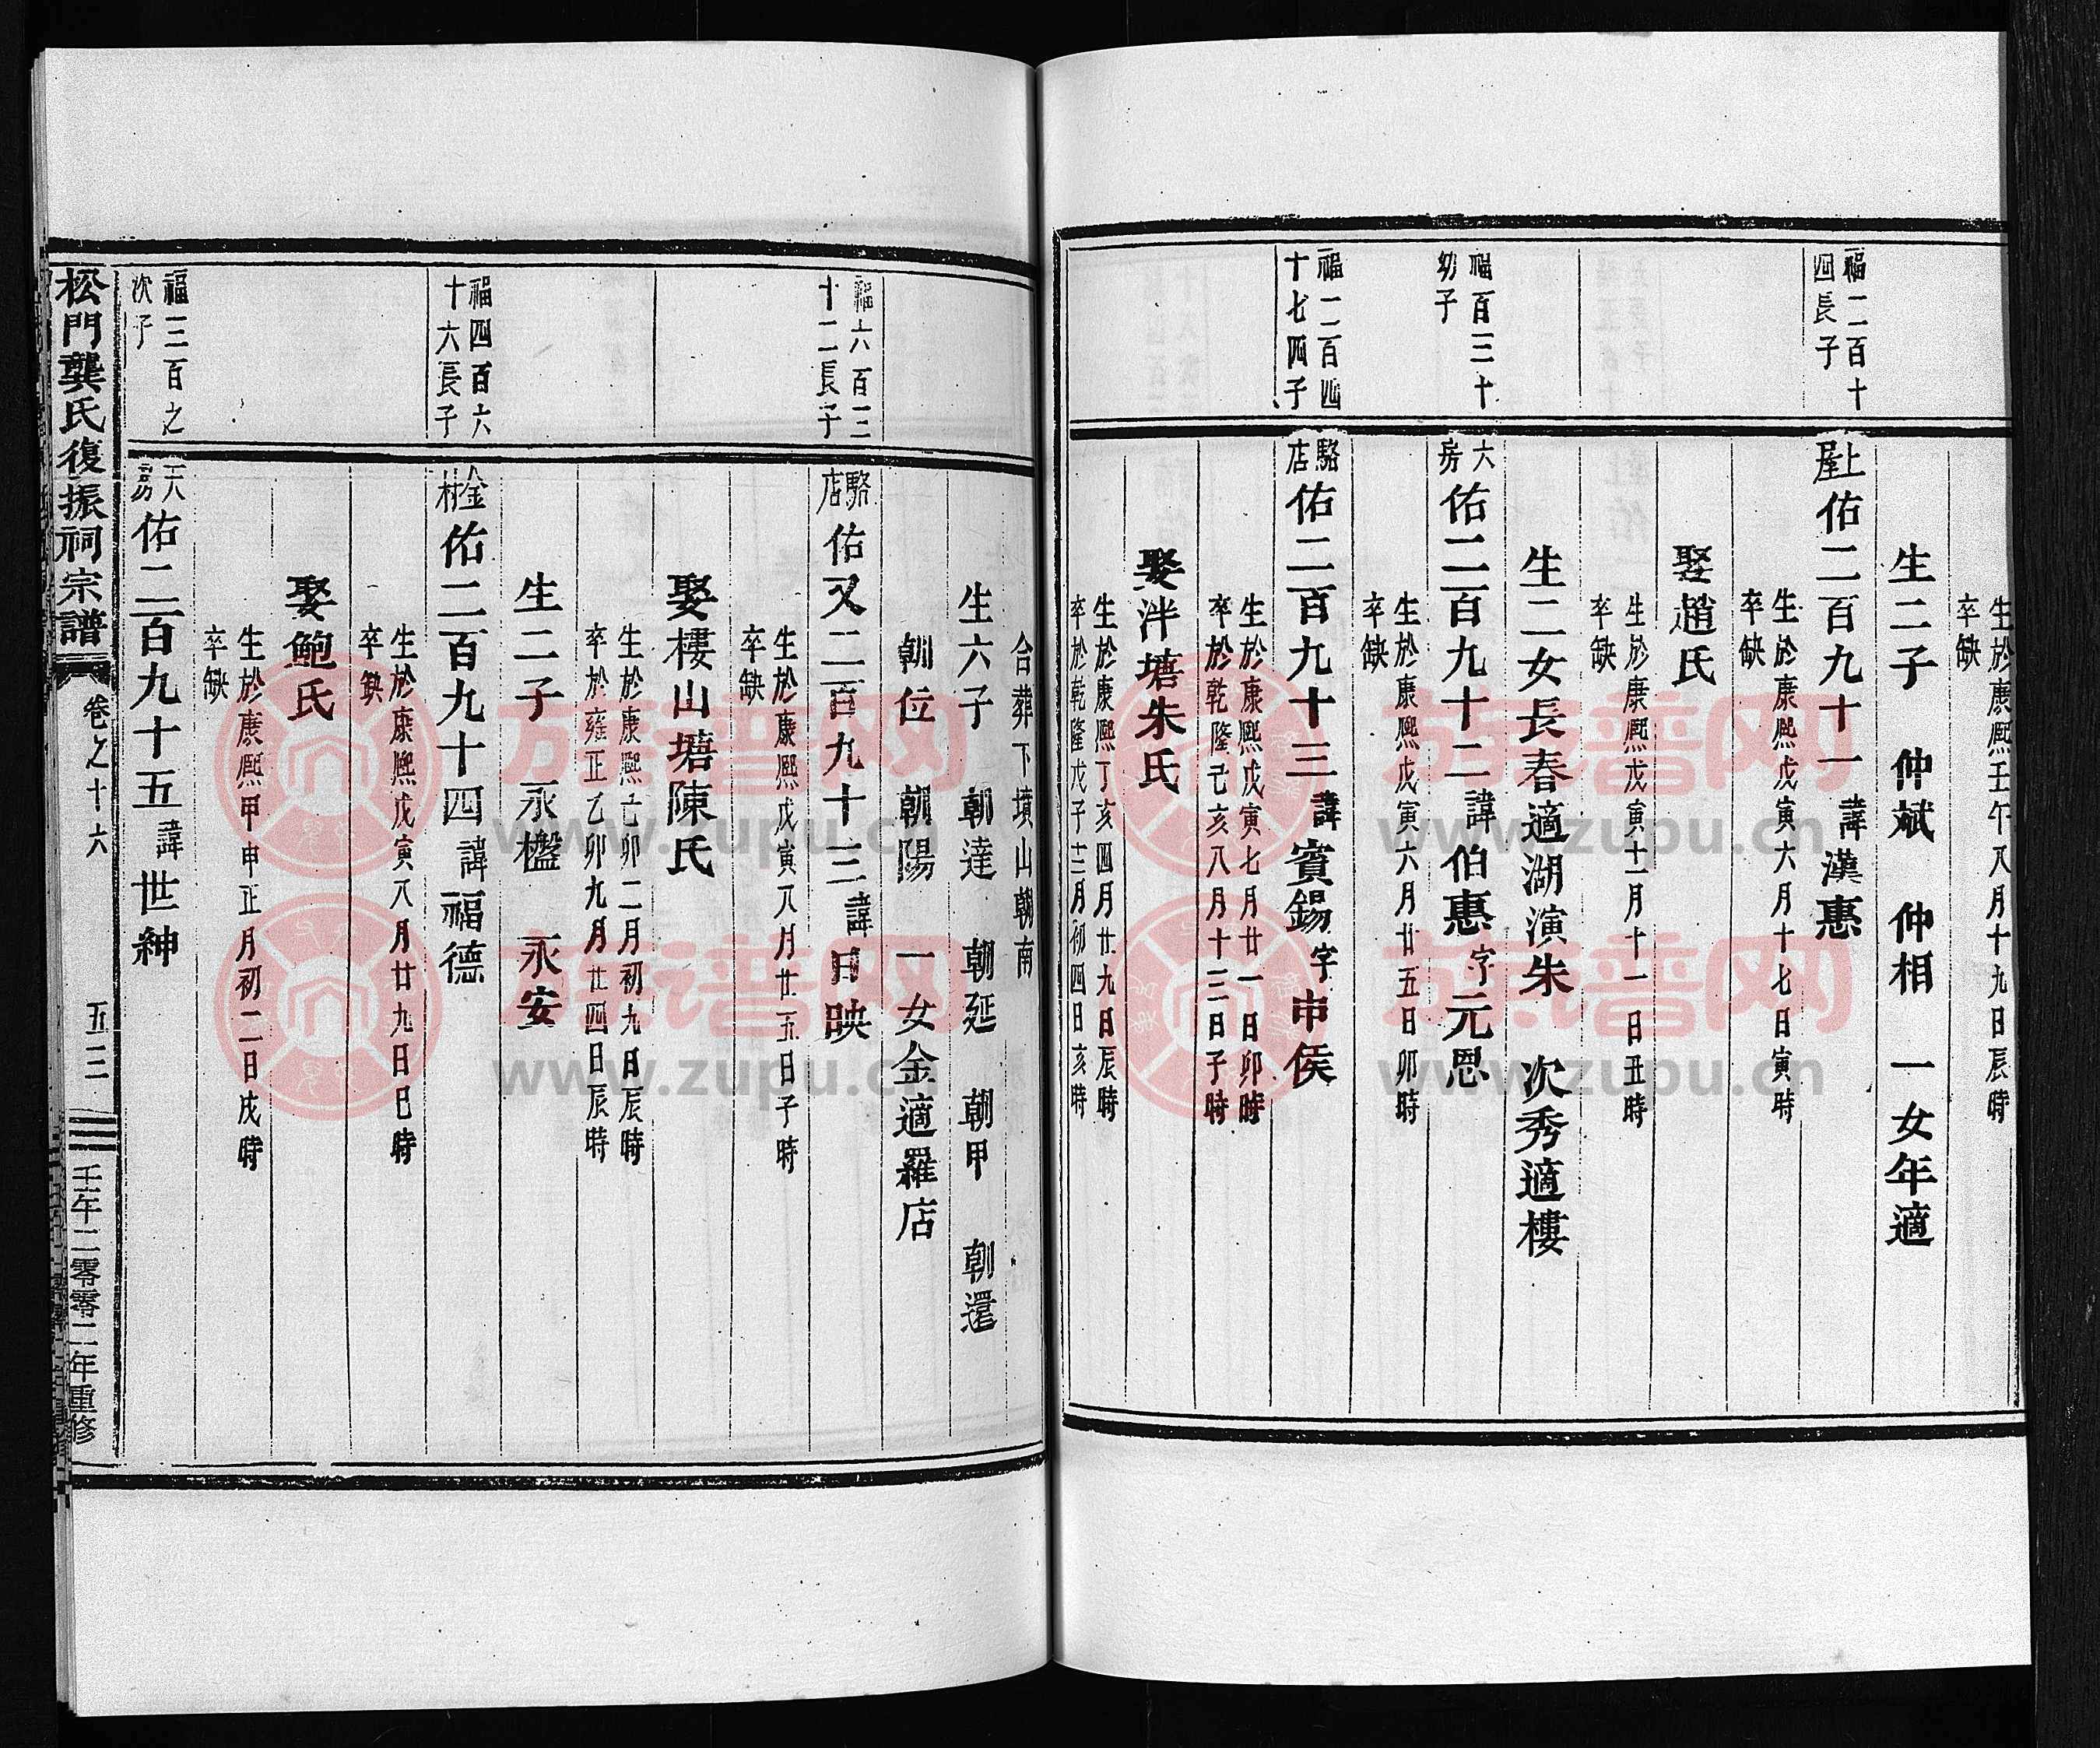 生於康熙壬午八月十九日辰時
卒缺
生二子 仲斌 仲相 一女年適
福二百十
四長子
上屋佑二百九十一諱漢惠
生於康熙戊寅六月十七日寅時
卒缺
娶趙氏
生於康熙戊寅十一月十一日丑時
卒缺
生二女長春適湖演朱 次秀適樓
福百三十
幼子
六房佑二百九十二諱伯惠字元恩
生於康熙戊寅六月廿五日卯時
卒缺
福二百四
十七四子
駱店佑二百九十三諱賓錫字申侯
生於康熙戊寅七月廿一日卯時
卒於乾隆己亥八月十三日子時
娶泮塘朱氏
生於康熙丁亥四月廿九日辰時
卒於乾隆戊子十二月初四日亥時
合葬下墳山朝南
生六子 朝達 朝延 朝甲 朝還
朝位 朝陽 一女金適羅店
福六百三
十二長子
駱店佑又二百九十三諱日映
生於康熙戊寅八月廿五日子時
卒缺
娶樓山塘陳氏
生於康熙己卯二月初九日辰時
卒於雍正乙卯九月廿四日辰時
生二子 永檻 永安
福四百六
十六長子
金村佑二百九十四諱福德
生於康熙戊寅八月廿九日巳時
卒缺
娶鮑氏
生於康熙甲申正月初二日戌時
卒缺
福三百之
次子
天房佑二百九十五諱世紳
松門龔氏復振祠宗譜 卷之十六 五三 壬午二零零二年重修
族谱网
www.zupu.cn
族谱网
www.zupu.cn
族谱网
www.zupu.cn
族谱网
www.zupu.cn